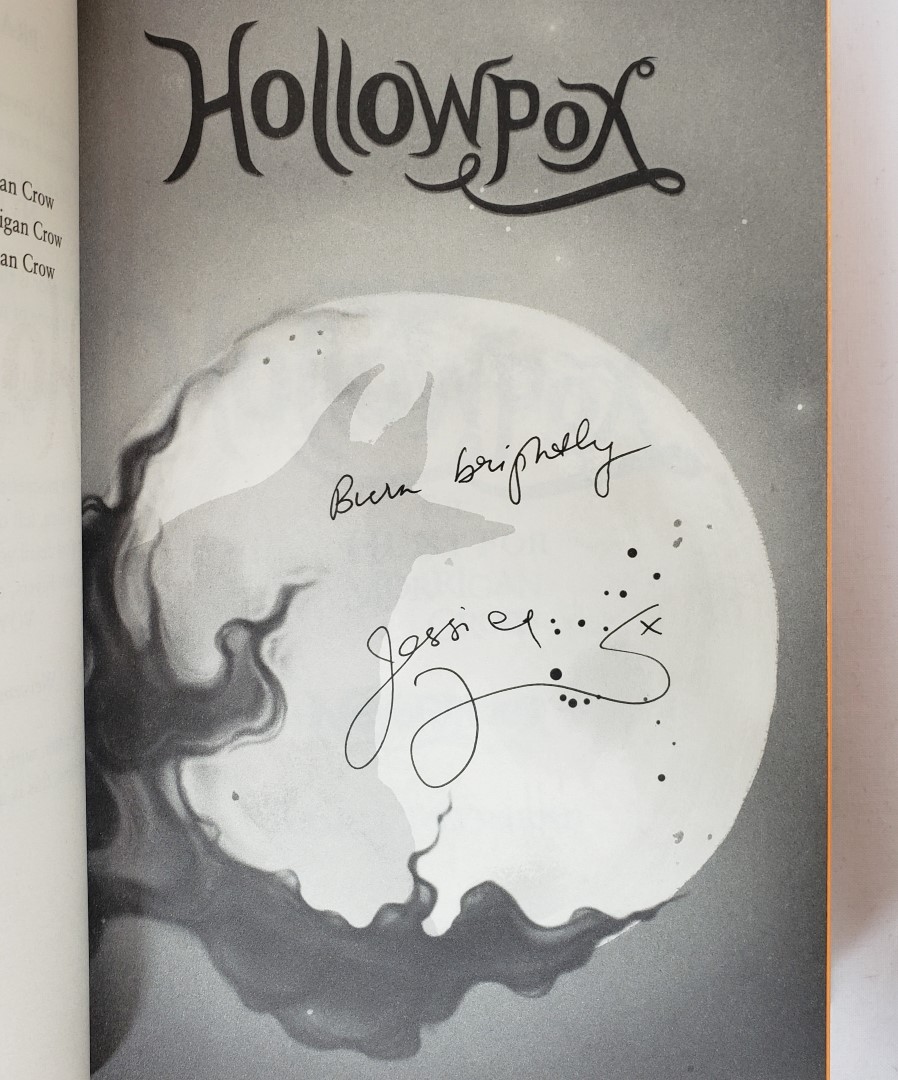 an Crow
igan Crow
an Crow
Hollowpox
Burn brightly
Jessica x